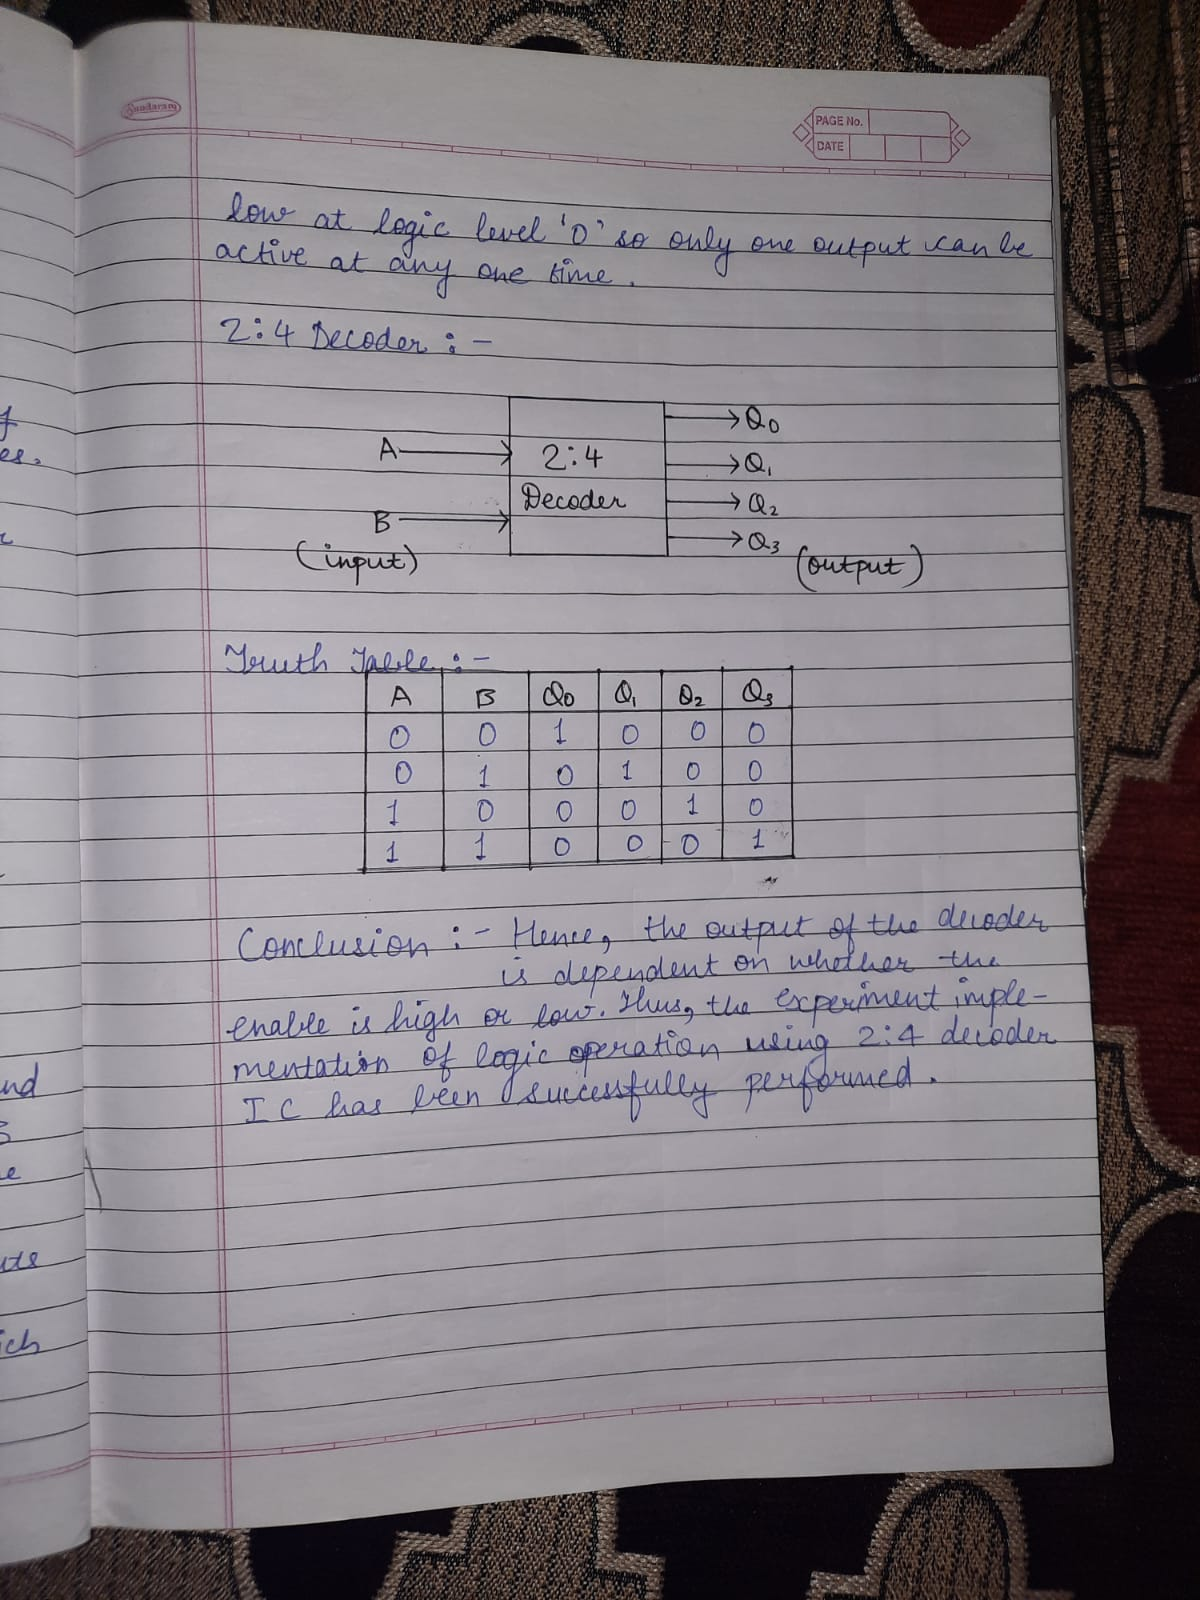 Sundaram
PAGE No.
DATE
low at logic level '0' so only one output can be
active at any one time.
2:4 Decoder :-
A
B
(input)
2:4
Decoder
Q0
Q1
Q2
Q3
(output)
Truth Table :-
A B Q0 Q1 Q2 Q3
0 0 1 0 0 0
0 1 0 1 0 0
1 0 0 0 1 0
1 1 0 0 0 1
Conclusion :- Hence, the output of the decoder
is dependent on whether the
enable is high or low. Thus, the experiment imple-
mentation of logic operation using 2:4 decoder
IC has been successfully performed.